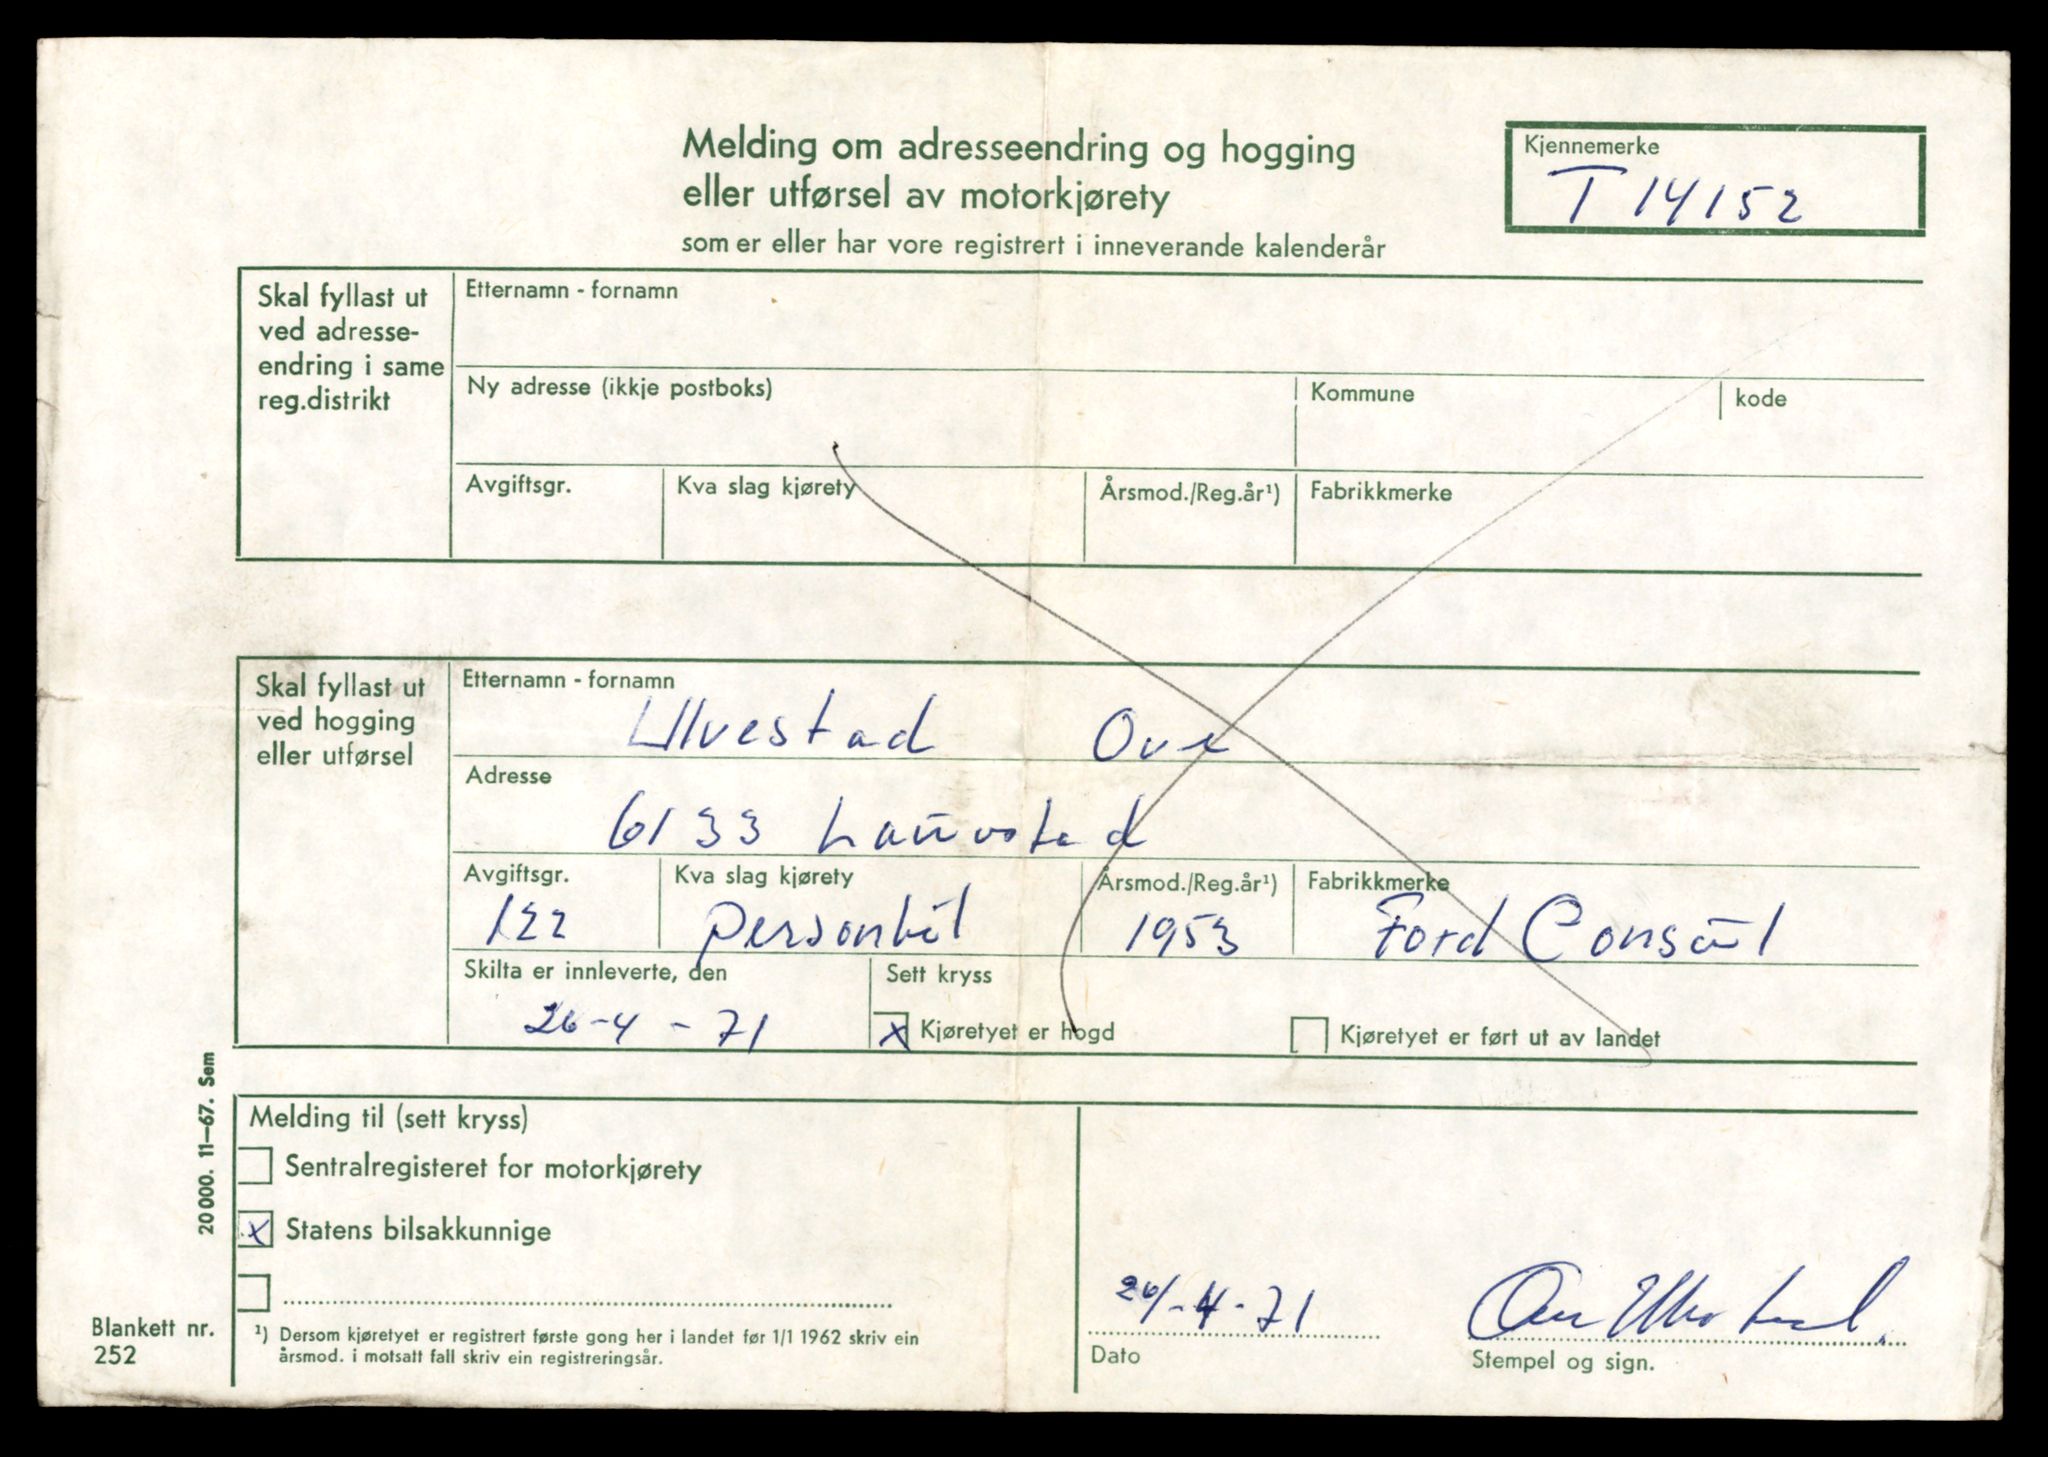 Melding om adresseendring og hogging
eller utførsel av motorkjørety
som er eller har vore registrert i inneverande kalenderår
Kjennemerke
T 14152
Skal fyllast ut
ved adresse-
endring i same
reg.distrikt
Etternamn - fornamn
Ny adresse (ikkje postboks)
Kommune
kode
Avgiftsgr.
Kva slag kjørety
Årsmod./Reg.år¹)
Fabrikkmerke
Skal fyllast ut
ved hogging
eller utførsel
Etternamn - fornamn
Ulvestad Ove
Adresse
6133 Lauvstad
Avgiftsgr.
122
Kva slag kjørety
Personbil
Årsmod./Reg.år¹)
1953
Fabrikkmerke
Ford Consul
Skilta er innleverte, den
26-4-71
Sett kryss
x Kjøretyet er hogd
Kjøretyet er ført ut av landet
Melding til (sett kryss)
Sentralregisteret for motorkjørety
x Statens bilsakkunnige
¹) Dersom kjøretyet er registrert første gong her i landet før 1/1 1962 skriv ein
årsmod. i motsatt fall skriv ein registreringsår.
26/-4-71
Dato
Ove Ulvestad.
Stempel og sign.
20000. 11-67. Sem
Blankett nr.
252